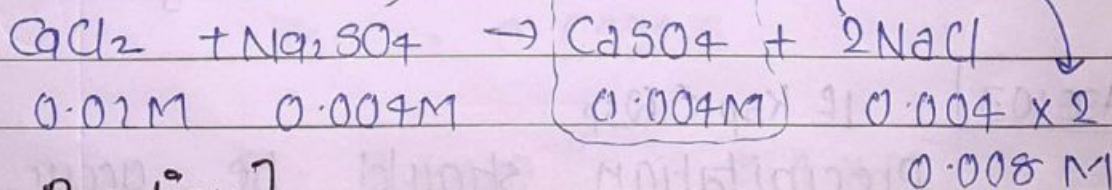 CaCl2 + Na2SO4 → CaSO4 + 2NaCl
0.02M 0.004M 0.004M 0.004 x 2
0.008 M